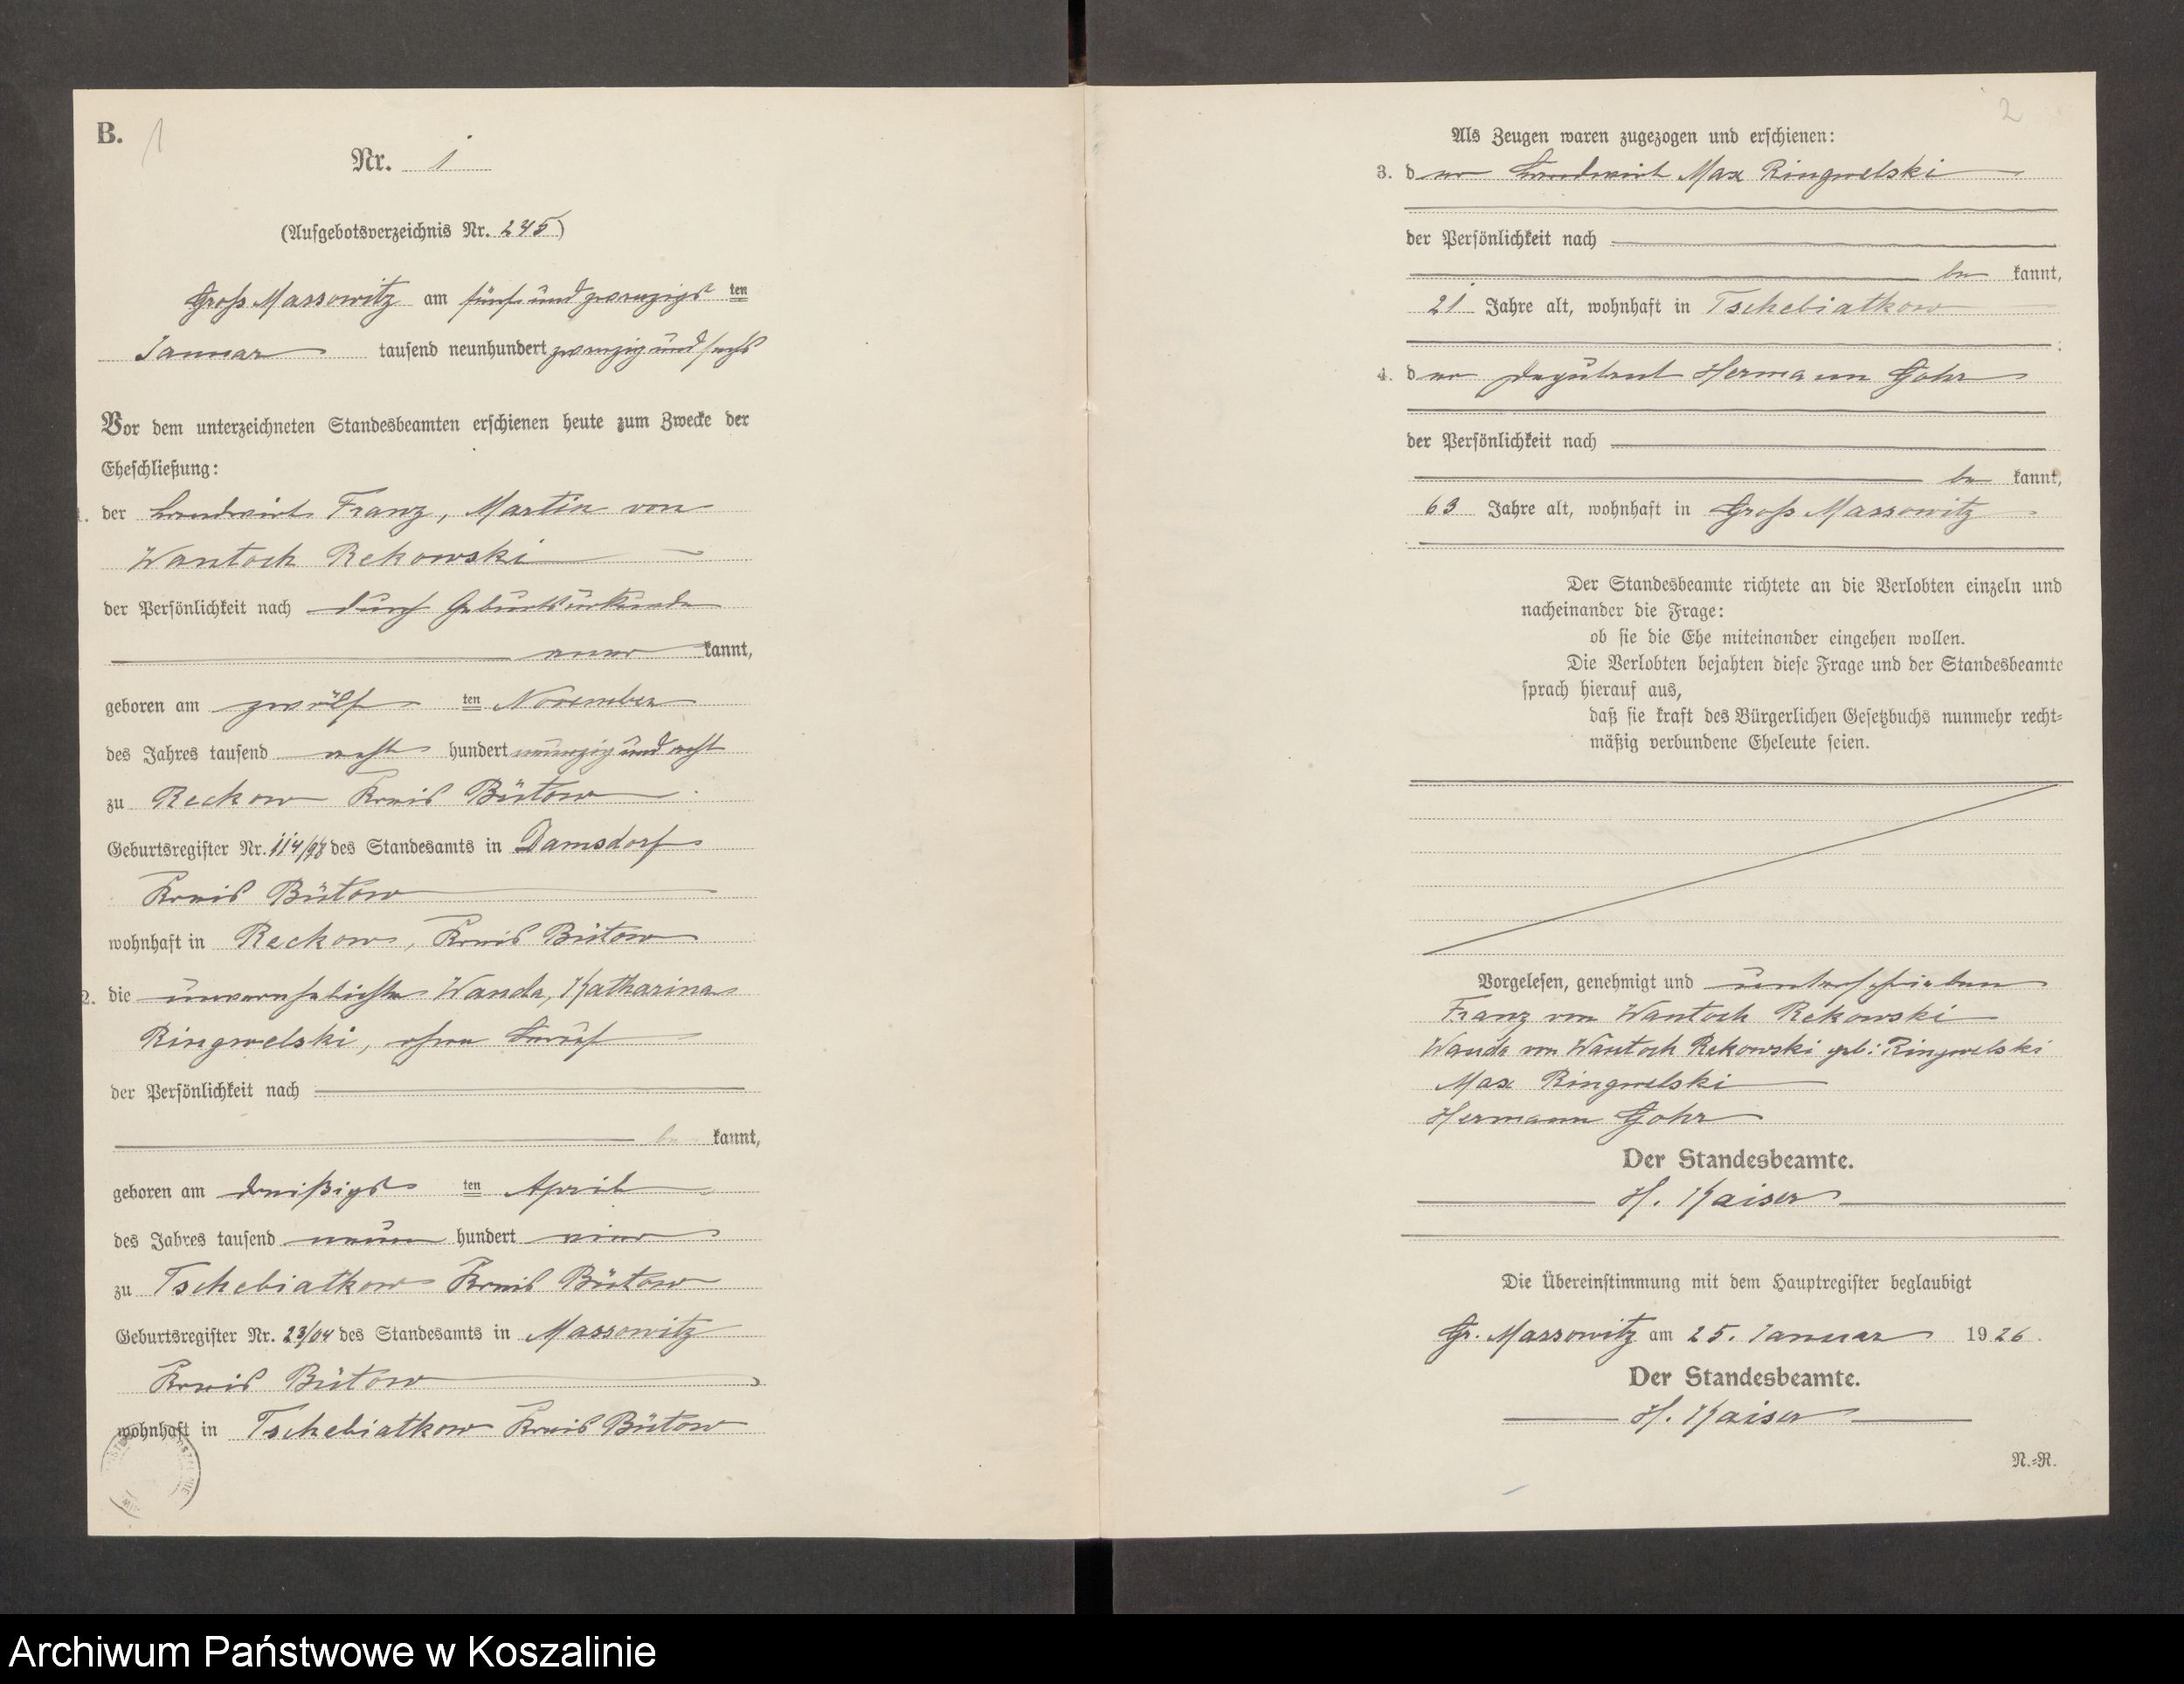 B. 1
Nr. 1
(Aufgebotsverzeichnis Nr. 245)
Groß Massowitz am fünf und zwanzigsten
Januar tausend neunhundert zwanzig und sechs
Vor dem unterzeichneten Standesbeamten erschienen heute zum Zwecke der
Eheschließung:
1. der Landwirt Franz, Martin von
Wantoch Rekowski
der Persönlichkeit nach durch Geburtsurkunde
aner kannt,
geboren am zwölf ten November
des Jahres tausend acht hundert neunzig und acht
zu Reckow Kreis Bütow
Geburtsregister Nr. 114/98 des Standesamts in Damsdorf
Kreis Bütow
wohnhaft in Reckow, Kreis Bütow
2. die unverehelichte Wanda, Katharina
Ringwelski, ohne Beruf
der Persönlichkeit nach
be kannt,
geboren am dreißigs ten April
des Jahres tausend neun hundert vier
zu Tschebiatkow Kreis Bütow
Geburtsregister Nr. 23/04 des Standesamts in Massowitz
Kreis Bütow
wohnhaft in Tschebiatkow Kreis Bütow
2
Als Zeugen waren zugezogen und erschienen:
3. der Landwirt Max Ringwelski
der Persönlichkeit nach
be kannt,
21 Jahre alt, wohnhaft in Tschebiatkow
;
4. der Deputant Hermann Gohr
der Persönlichkeit nach
be kannt,
63 Jahre alt, wohnhaft in Groß Massowitz
Der Standesbeamte richtete an die Verlobten einzeln und
nacheinander die Frage:
ob sie die Ehe miteinander eingehen wollen.
Die Verlobten bejahten diese Frage und der Standesbeamte
sprach hierauf aus,
daß sie kraft des Bürgerlichen Gesetzbuchs nunmehr recht-
mäßig verbundene Eheleute seien.
Vorgelesen, genehmigt und unterschrieben
Franz von Wantoch Rekowski
Wanda von Wantoch Rekowski geb: Ringwelski
Max Ringwelski
Hermann Gohr
Der Standesbeamte.
H. Kaiser
Die Übereinstimmung mit dem Hauptregister beglaubigt
Gr. Massowitz am 25. Januar 1926.
Der Standesbeamte.
H. Kaiser
N.-R.
Archiwum Państwowe w Koszalinie